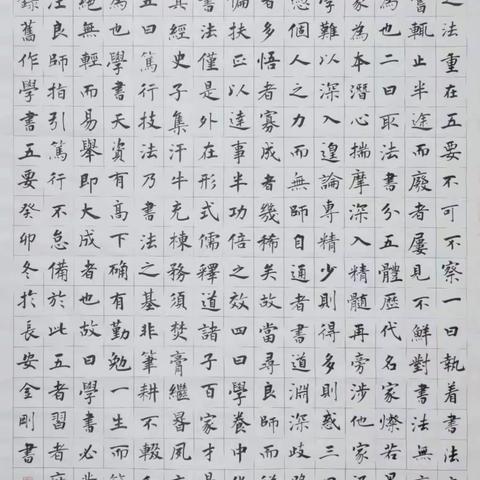 法重在五要不可不察一曰執着書法
書輒止半途而廢者屢見不鮮對書法無
為也二曰取法書分五體歷代名家燦若
家為本潛心揣摩深入精髓再旁涉他家
學難以深入遑論專精少則得多則惑三
憑個人之力而無師自通者書道淵深歧路
者多悟者寡成者幾稀矣故當尋良師而從
扶正以達事半功倍之效四曰學養中
書法僅是外在形式儒釋道諸子百家才
其經史子集汗牛充棟務須焚膏繼晷風
五曰篤行技法乃書法之基非筆耕不輟
為也學書天資有高下確有勤勉一生而
絕無輕而易舉即大成者也故曰學書必
良師指引篤行不怠備於此五者習者
錄舊作學書五要癸卯冬於長安金剛書